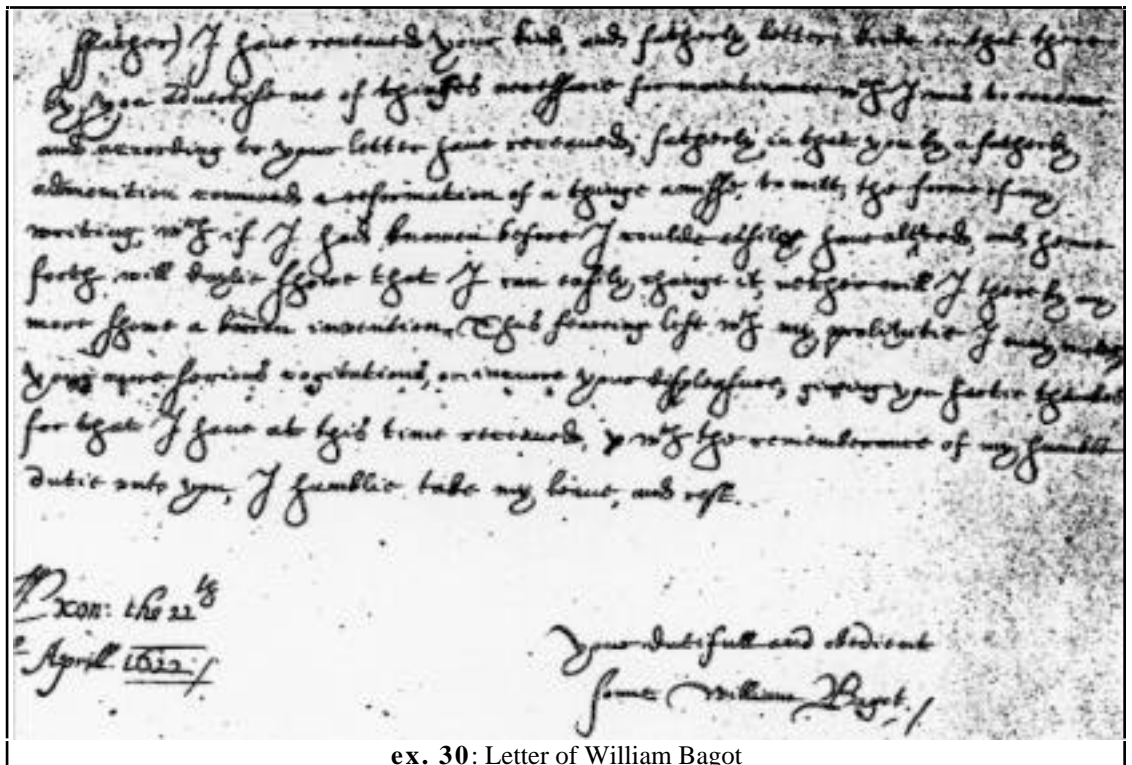 ffather) I haue receaued your kind, and fatherly letters kinde in that there
by you aduertise me of thinges necessarie for maintenance wch I was to receaue
and according to your letter haue receaued, fatherly, in that you by a fatherly
admonition commaund a reformation of a thinge amisse, to witt, the forme of my
writing, wch if I had knowen before I woulde easilye haue altered, and hence
forth will daylie shewe that I can easily change it, nether will I thereby any
more shewe a barren invention. Thus fearing lest wth my prolixitie I may
your more serious cogitations, or incurre your displeasure, giuing you hartie thankes
for that I haue at this time receaued, & wth the rememberance of my humble
dutie vnto you, I humblie take my leaue, and rest.
Oxon: the 22th
Aprill 1622:/
Your dutifull and obedient
sonne William Bagot:/
ex. 30: Letter of William Bagot